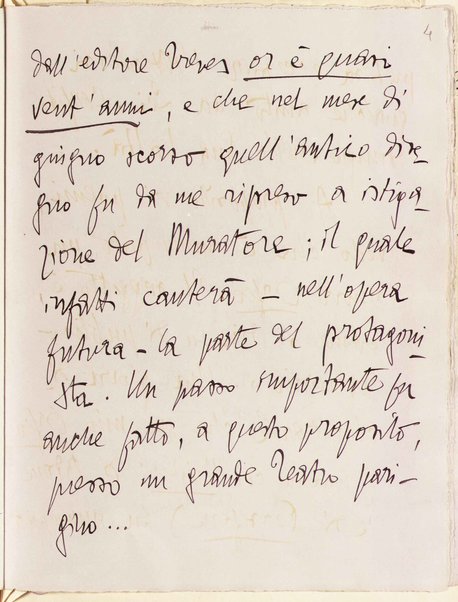 4
dall'editore Treves or è quasi
vent'anni, e che nel mese di
giugno scorso quell'antico dise-
gno fu da me ripreso a istiga-
zione del Muratore; il quale
infatti canterà – nell'opera
futura – la parte del protagoni-
sta. Un passo importante fu
anche fatto, a questo proposito,
presso un grande Teatro pari-
gino...